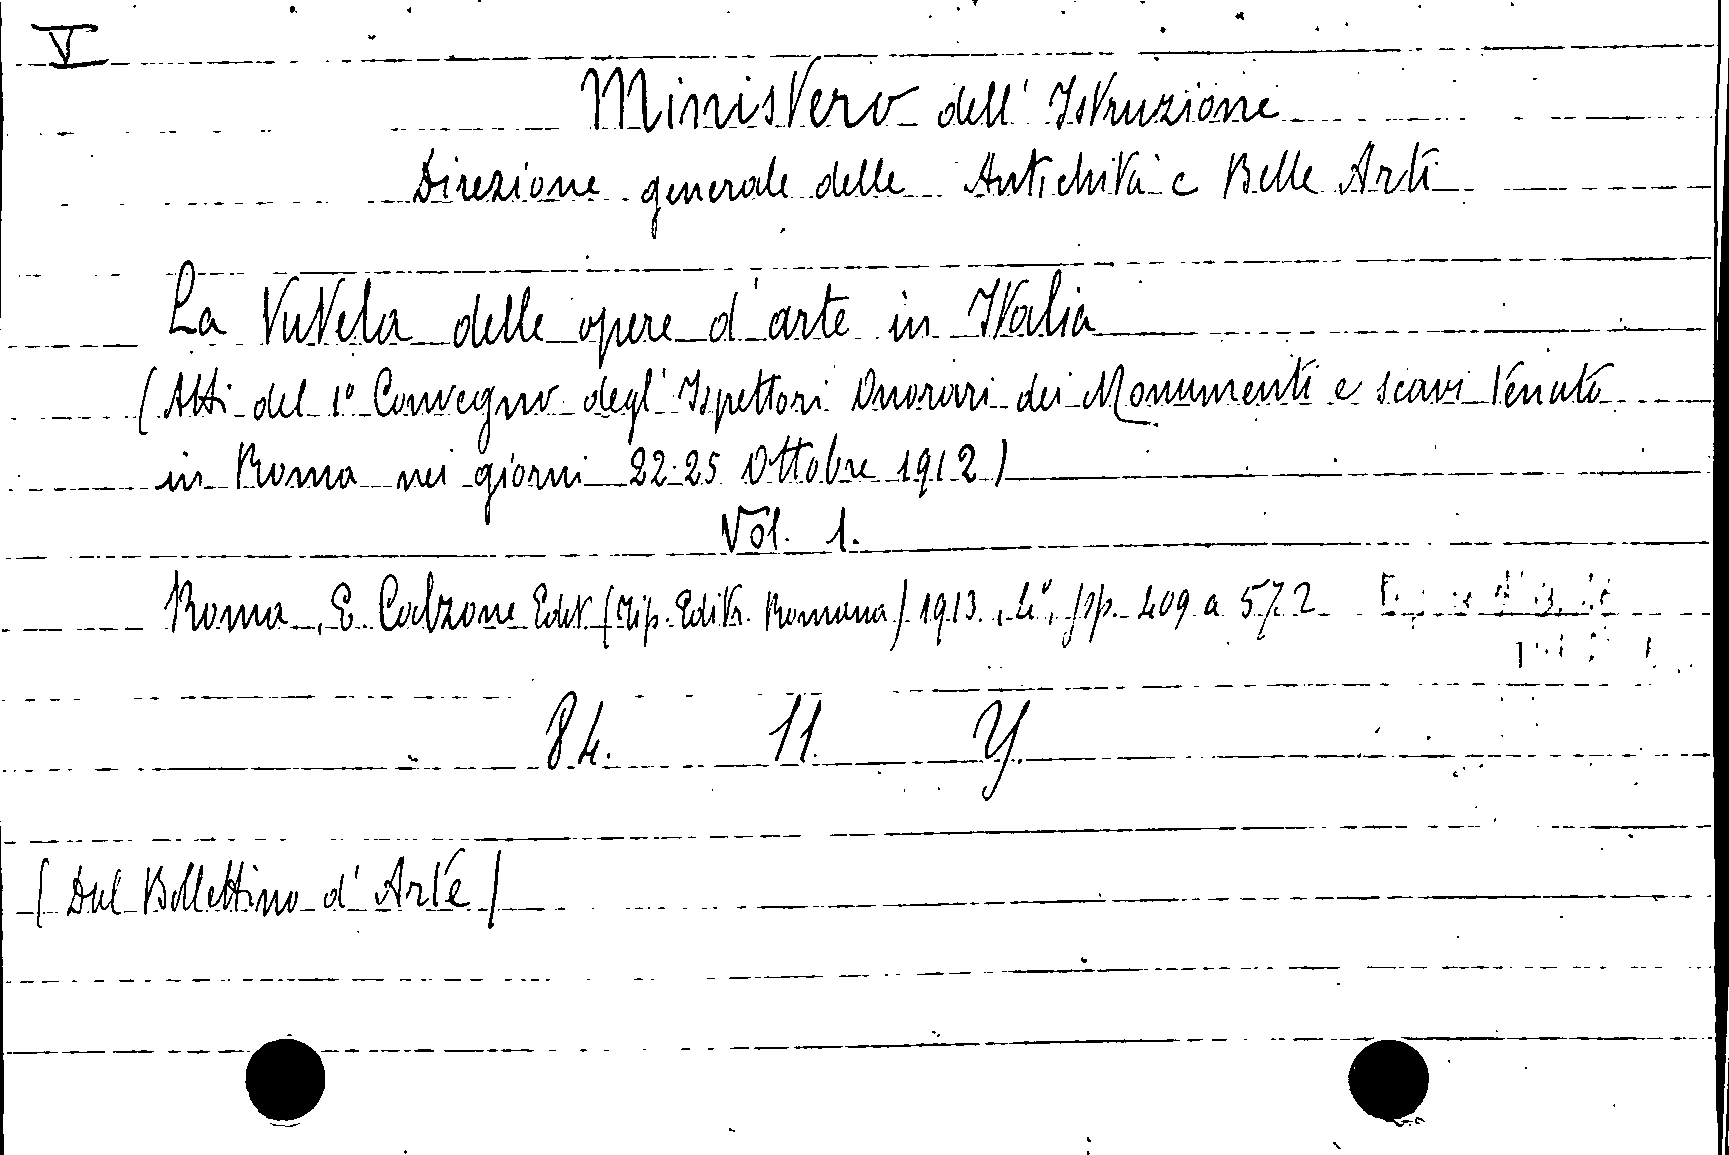 V
Ministero dell' Istruzione
Direzione generale delle Antichità e Belle Arti
La Tutela delle opere d'arte in Italia
(Atti del 1° Convegno degl' Ispettori Onorari dei Monumenti e scavi tenuto
in Roma nei giorni 22-25 Ottobre 1912)
Vol. 1.
Roma, E. Calzone Edit (Tip. Editr. Romana) 1913, 4°, pp. 409 a 572
84. 11. Y.
(Dal Bollettino d' Arte)